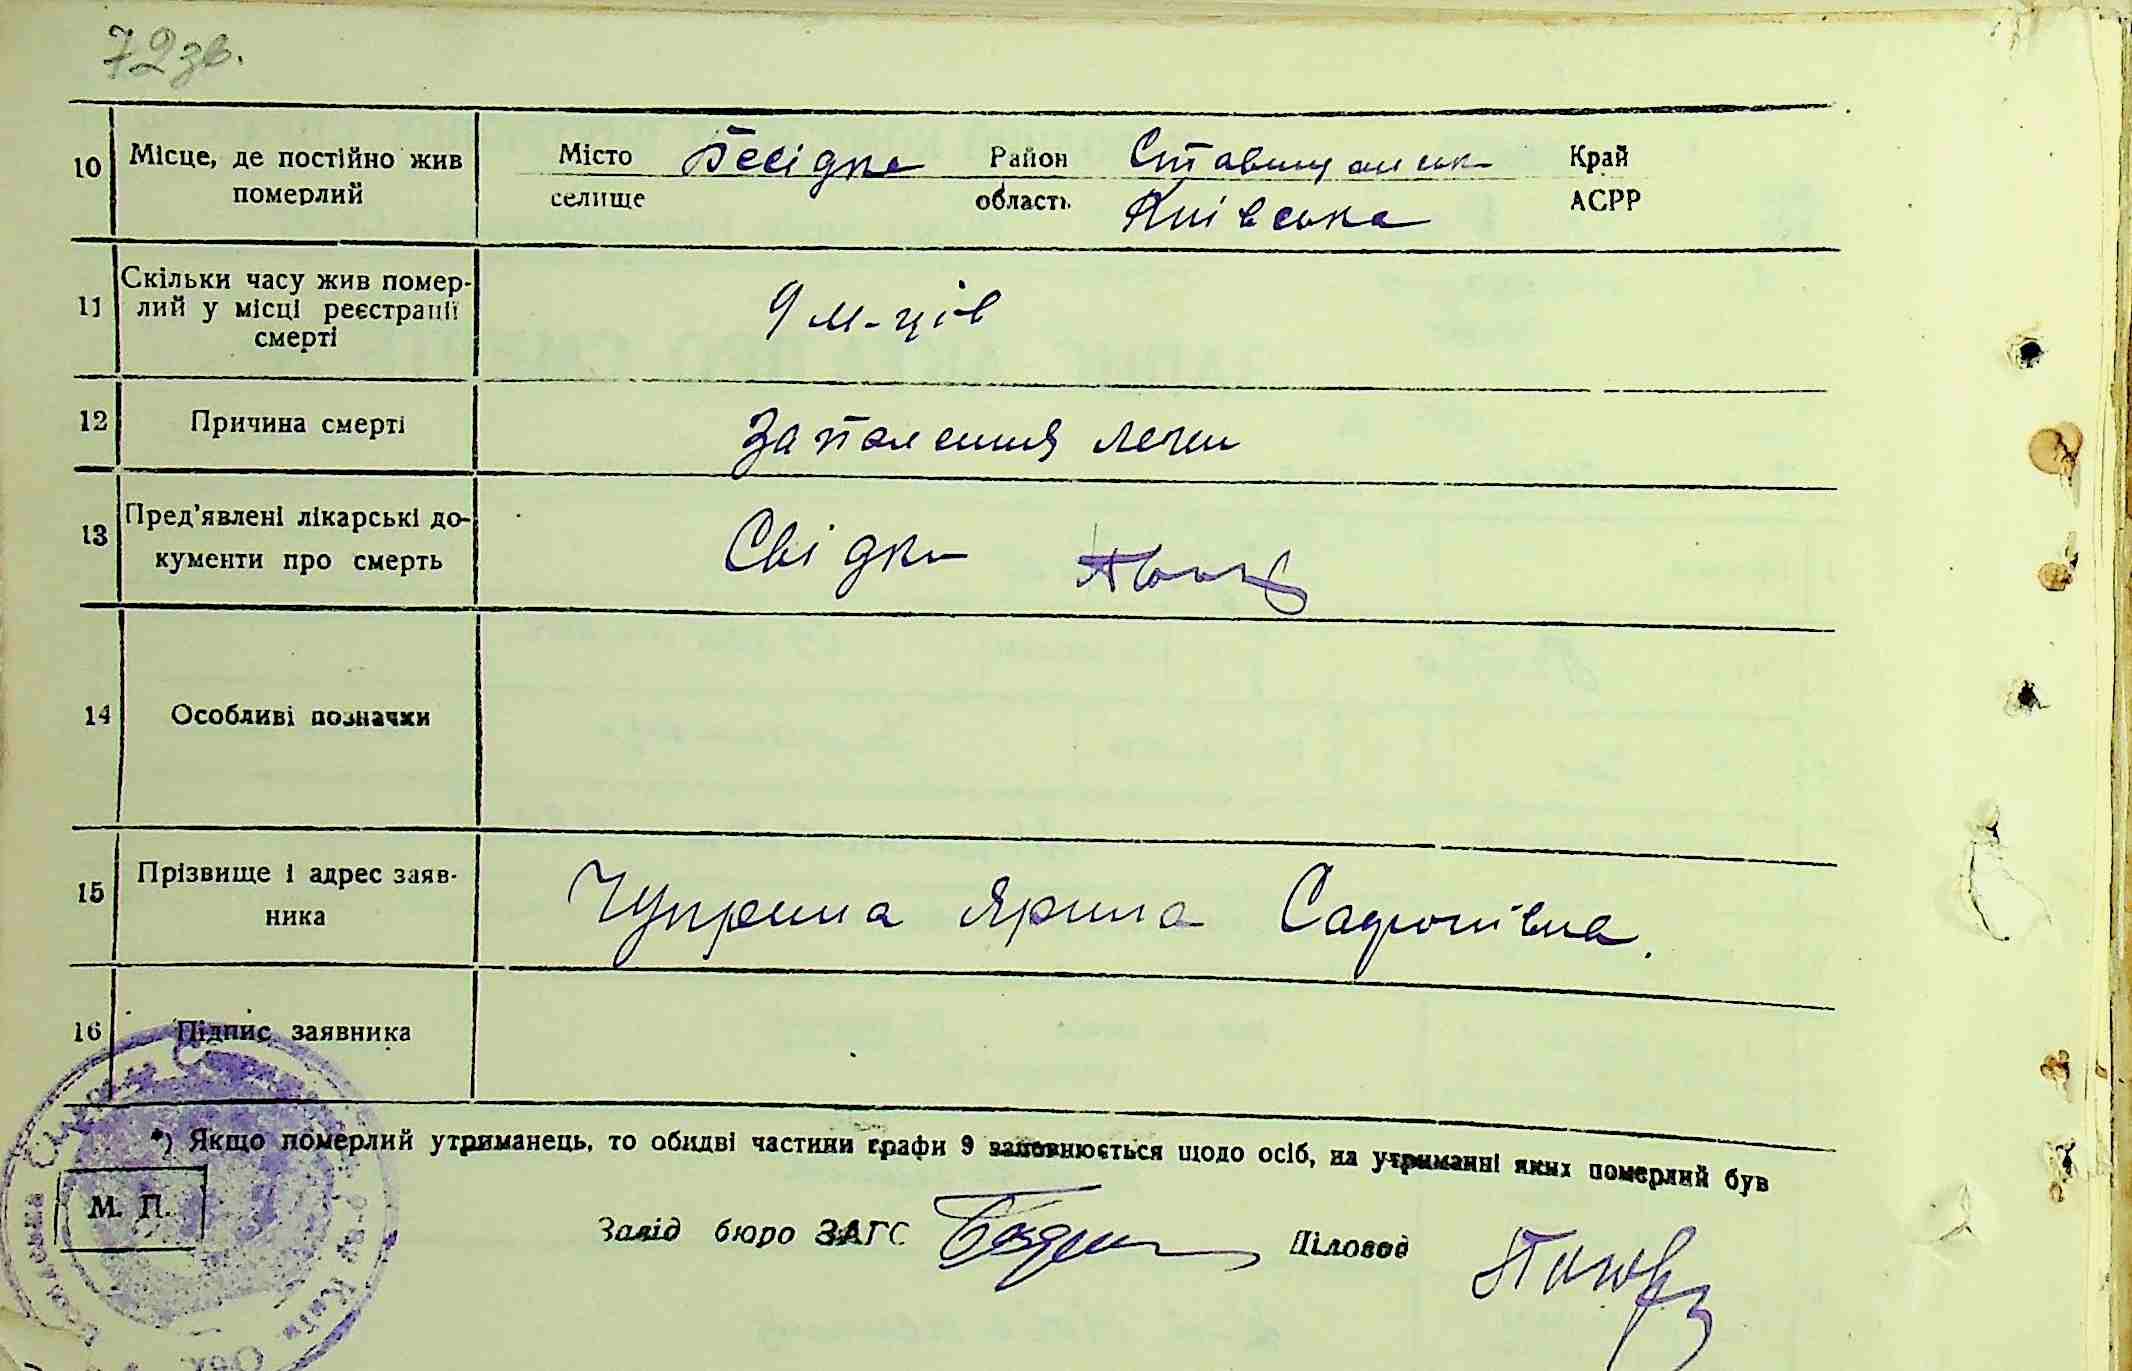 72зв.
10 Місце, де постійно жив померлий
Місто Бесідка Район Ставищанськ Край
селище область Київська АСРР
11 Скільки часу жив помер-
лий у місці реєстрації
смерті
9 м-ців
12 Причина смерті Запалення леген
13 Пред'явлені лікарські до-
кументи про смерть
Свідки
14 Особливі позначки
15 Прізвище і адрес заяв-
ника
Чуприна Ярина Сафонівна.
16 Підпис заявника
*) Якщо померлий утриманець, то обидві частини графи 9 заповнюється щодо осіб, на утриманні яких померлий був
М. П.
Завід бюро ЗАГС Діловод